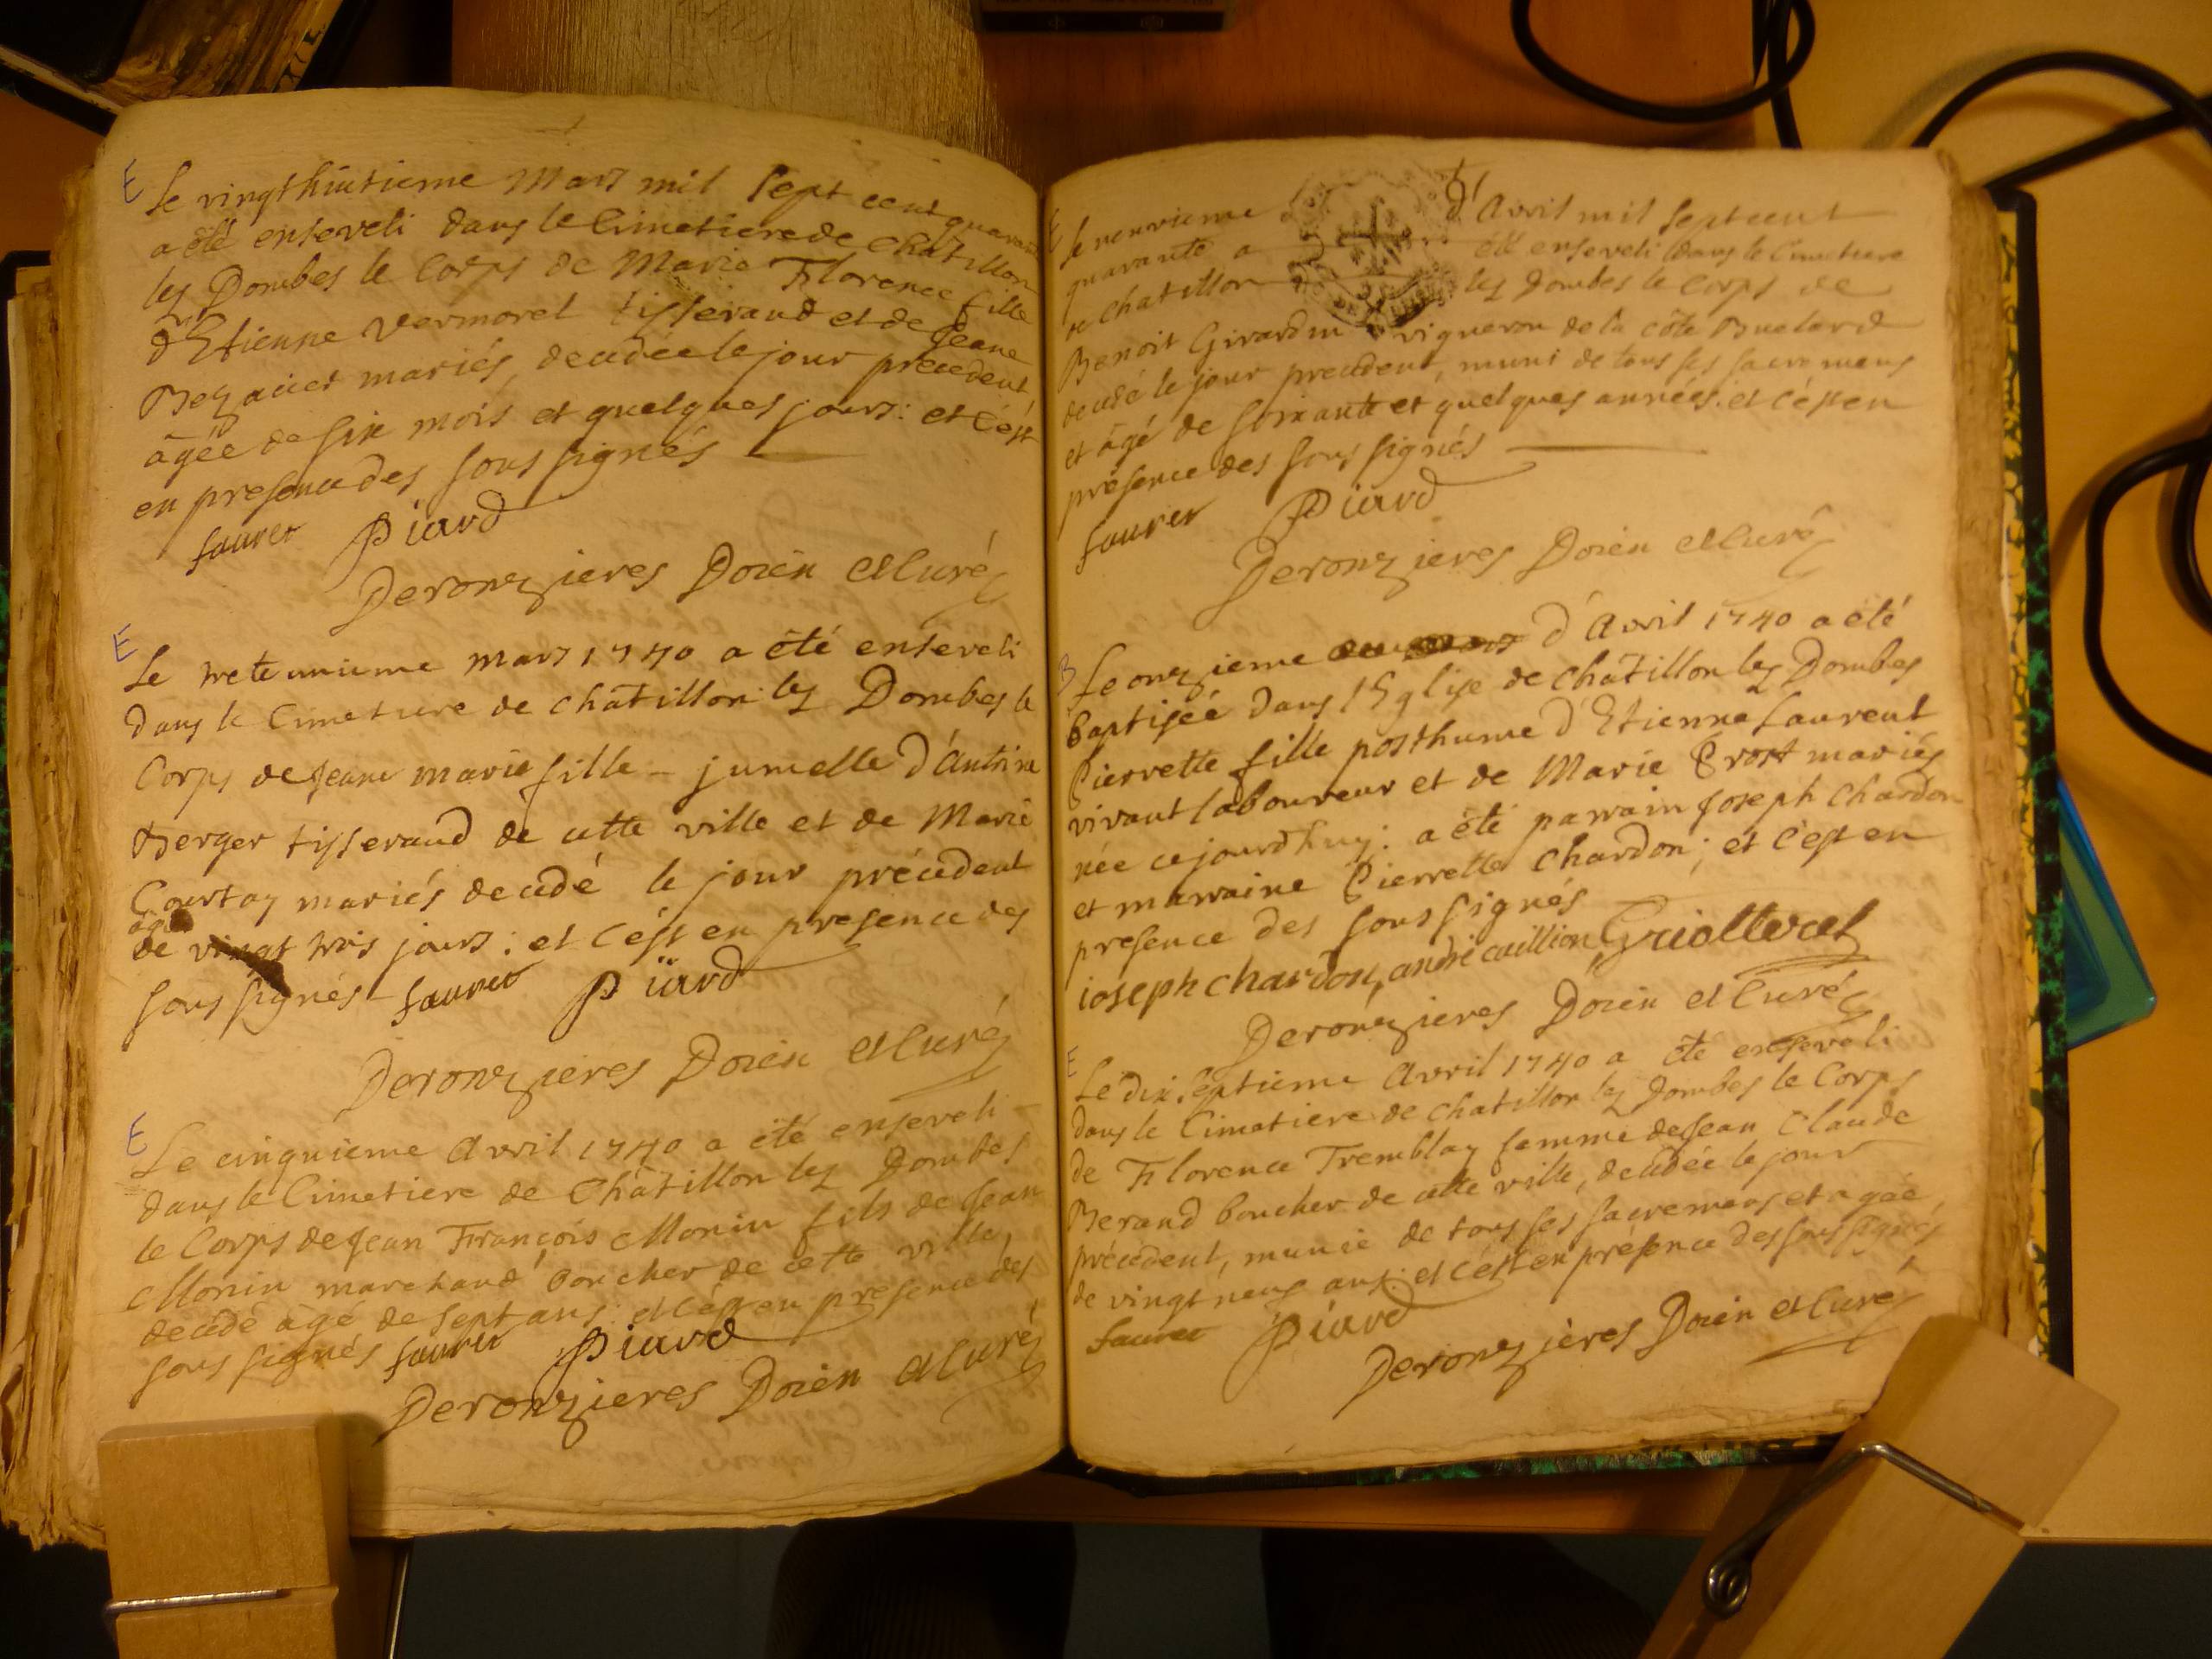 E
Le vingt huitieme Mars mil sept cent quarante
a été enseveli dans le Cimetiere de Châtillon
lez Dombes le Corps de Marie Florence fille
d'Etienne Vermorel tisserand et de Jeane
mariés, decedée le jour precedent,
âgée de six mois et quelques jours: et c'est
en presence des sous signés
faurer Piard
Deronzieres Doïen et Curé
E
Le trete unieme mars 1740 a été enseveli
dans le Cimetiere de châtillon lez Dombes le
Corps de Jeane marie fille - jumelle d'Antoine
Berger tisserand de cette ville et de Marie
Courtoy mariés decedé le jour précedent
âgée
de vingt trois jours: et c'est en presence des
sous signés - faurer Piard
Deronzieres Doïen et Curé
E
Le cinquieme Avril 1740 a été enseveli -
dans le Cimetiere de Châtillon lez Dombes
le Corps de Jean François Monin fils de Jean
Monin marchand boucher de cette ville,
decedé âgé de sept ans: et c'est en presence des
sous signés faurer Piard
Deronzieres Doïen et Curé
E
Le neuvieme d'Avril mil sept cent
quarante a été enseveli dans le Cimetiere
de Chatillon lez Dombes le Corps de
Benoit Girardin vigneron de la côte
decedé le jour precedent, muni de tous ses sacremens
et âgé de soixante et quelques années: et c'est en
présence des sous signés
faurer Piard
Deronzieres Doïen et Curé
B
Le onzieme d'Avril 1740 a été
baptisée dans l'Eglise de Châtillon lez Dombes
Pierrette fille posthume d'Etienne Laurent
vivant laboureur et de Marie Prost mariés
née cejourd'huy: a été parrain Joseph Chardon
et marraine Pierrette Chardon; et c'est en
presence des sous signés
ioseph chardon, andré cuillion, Griottier
Deronzieres Doïen et Curé
E
Le dix septieme Avril 1740 a été enseveli
dans le Cimetiere de châtillon lez Dombes le Corps
de Florence Tremblay femme de Jean Claude
Berand boucher de cette ville, decedée le jour
précedent, munie de tous ses sacremens et agée
de vingt neuf ans: et c'est en présence des sous signés
faurer Piard
Deronzieres Doïen et Curé